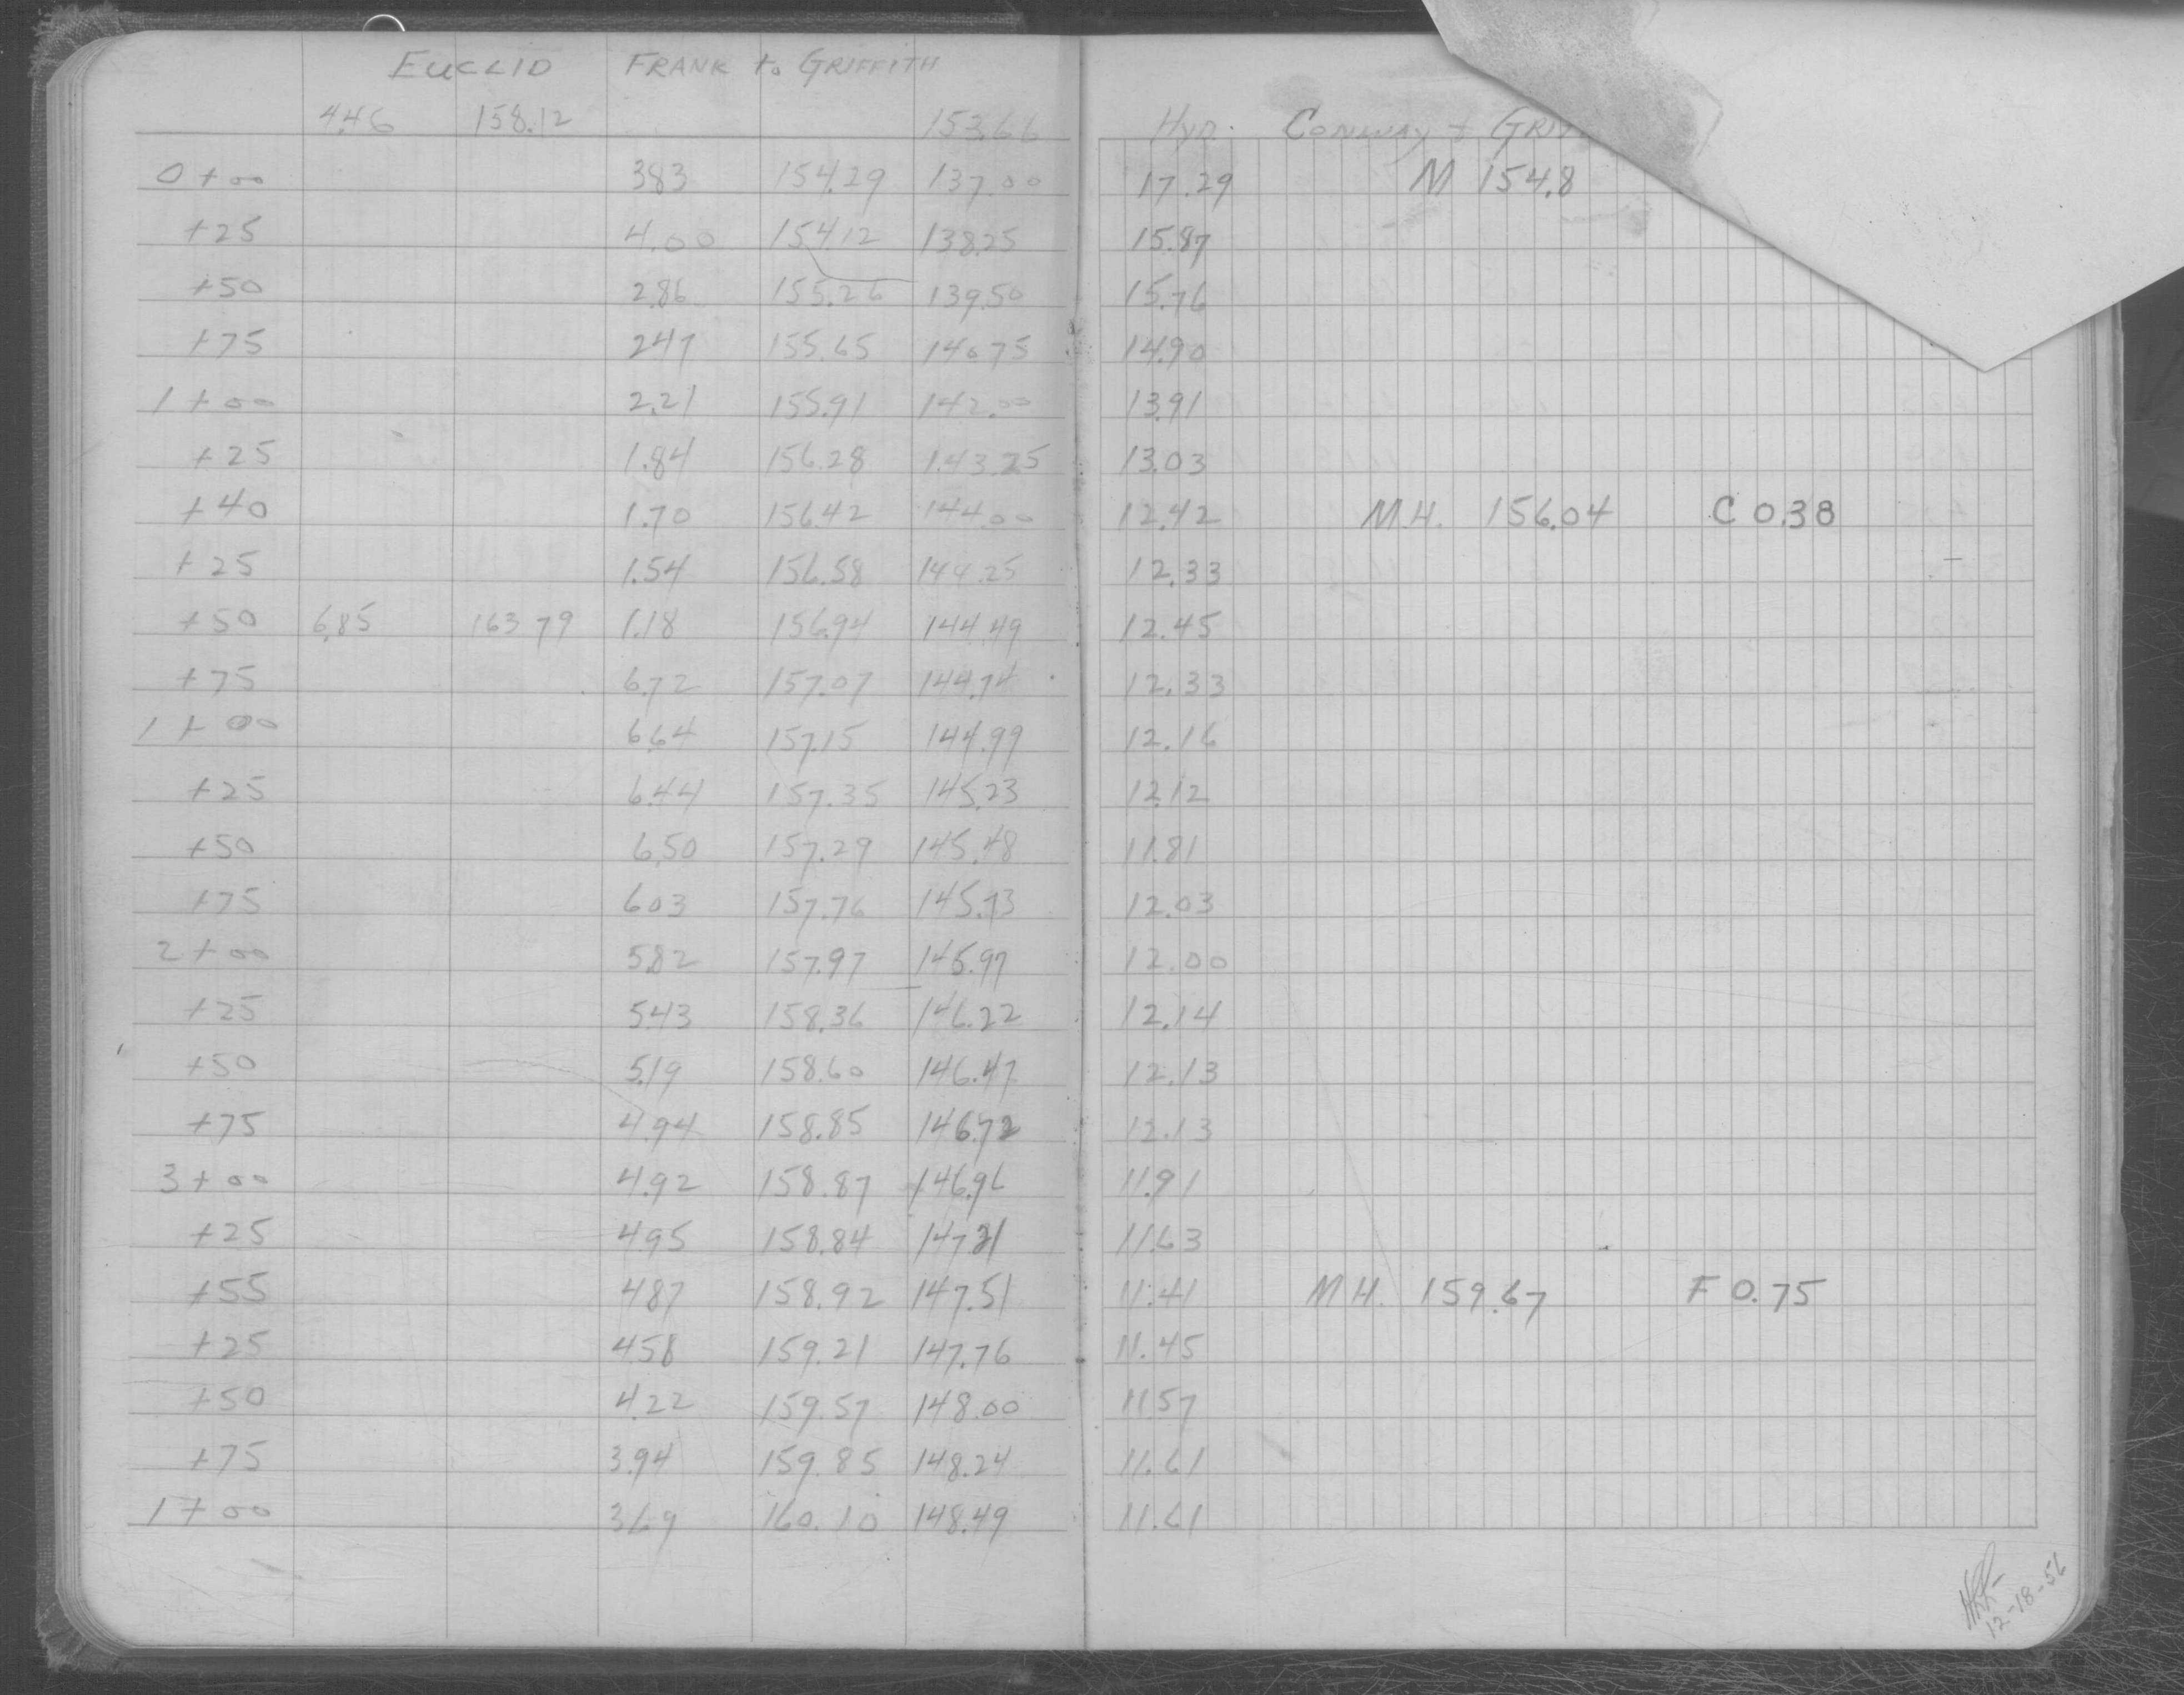 EUCLID FRANK to GRIFFITH
4.46 158.12 153.66 HYD. CONWAY &
0+00 383 154.29 137.00 17.29 M 154.8
+25 4.00 154.12 138.25 15.87
+50 2.86 155.26 139.50 15.76
+75 247 155.65 140.75 14.90
1+00 2.21 155.91 142.00 13.91
+25 1.84 156.28 143.25 13.03
+40 1.70 156.42 144.00 12.42 M.H. 156.04 C 0.38
+25 1.54 156.58 144.25 12.33
+50 6.85 163 79 1.18 156.94 144.49 12.45
+75 6.72 157.07 144.74 12.33
1+00 6.64 157.15 144.99 12.16
+25 6.44 157.35 145.23 12.12
+50 6.50 157.29 145.48 11.81
+75 603 157.76 145.73 12.03
2+00 5.82 157.97 145.97 12.00
+25 5.43 158.36 146.22 12.14
+50 5.19 158.60 146.47 12.13
+75 4.94 158.85 146.72 12.13
3+00 4.92 158.87 146.96 11.91
+25 4.95 158.84 147.21 11.63
+55 487 158.92 147.51 11.41 M H. 159.67 F 0.75
+25 458 159.21 147.76 11.45
+50 4.22 159.57 148.00 11.57
+75 3.94 159.85 148.24 11.61
1+00 3.69 160.10 148.49 11.61
12-18-56